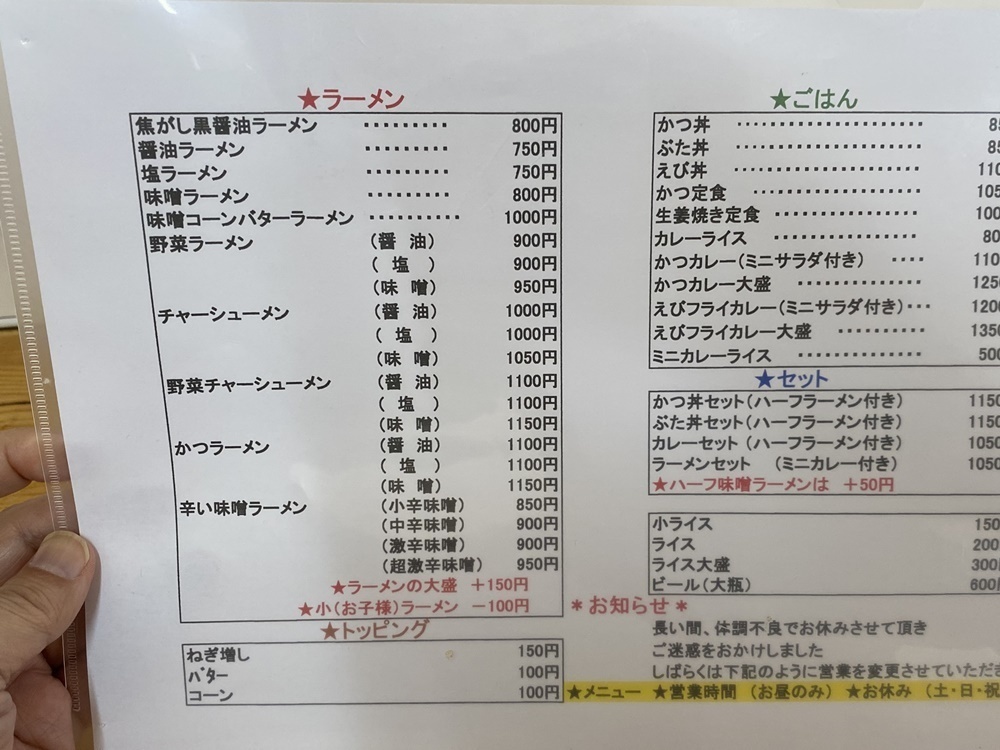 ★ラーメン
焦がし黒醤油ラーメン ・・・・・・・・・ 800円
醤油ラーメン ・・・・・・・・・ 750円
塩ラーメン ・・・・・・・・・ 750円
味噌ラーメン ・・・・・・・・・ 800円
味噌コーンバターラーメン ・・・・・・・・・・ 1000円
野菜ラーメン (醤 油) 900円
( 塩 ) 900円
(味 噌) 950円
チャーシューメン (醤 油) 1000円
( 塩 ) 1000円
(味 噌) 1050円
野菜チャーシューメン (醤 油) 1100円
( 塩 ) 1100円
(味 噌) 1150円
かつラーメン (醤 油) 1100円
( 塩 ) 1100円
(味 噌) 1150円
辛い味噌ラーメン (小辛味噌) 850円
(中辛味噌) 900円
(激辛味噌) 900円
(超激辛味噌) 950円
★ラーメンの大盛 +150円
★小(お子様)ラーメン −100円
★トッピング
ねぎ増し 150円
バター 100円
コーン 100円
★ごはん
かつ丼 ・・・・・・・・・・・・・・・・・・・・
ぶた丼 ・・・・・・・・・・・・・・・・・・・・
えび丼 ・・・・・・・・・・・・・・・・・・・・ 110
かつ定食 ・・・・・・・・・・・・・・・・・・ 105
生姜焼き定食 ・・・・・・・・・・・・・・・ 100
カレーライス ・・・・・・・・・・・・・・・ 80
かつカレー(ミニサラダ付き) ・・・・ 110
かつカレー大盛 ・・・・・・・・・・・・・ 125
えびフライカレー(ミニサラダ付き)・・・ 120
えびフライカレー大盛 ・・・・・・・・・・ 1350
ミニカレーライス ・・・・・・・・・・・・・ 500
★セット
かつ丼セット(ハーフラーメン付き) 1150
ぶた丼セット(ハーフラーメン付き) 1150
カレーセット(ハーフラーメン付き) 1050
ラーメンセット (ミニカレー付き) 1050
★ハーフ味噌ラーメンは +50円
小ライス 150
ライス 200
ライス大盛 300
ビール(大瓶) 600
＊お知らせ＊
長い間、体調不良でお休みさせて頂き
ご迷惑をおかけしました
しばらくは下記のように営業を変更させていただき
★メニュー ★営業時間 (お昼のみ) ★お休み (土・日・祝